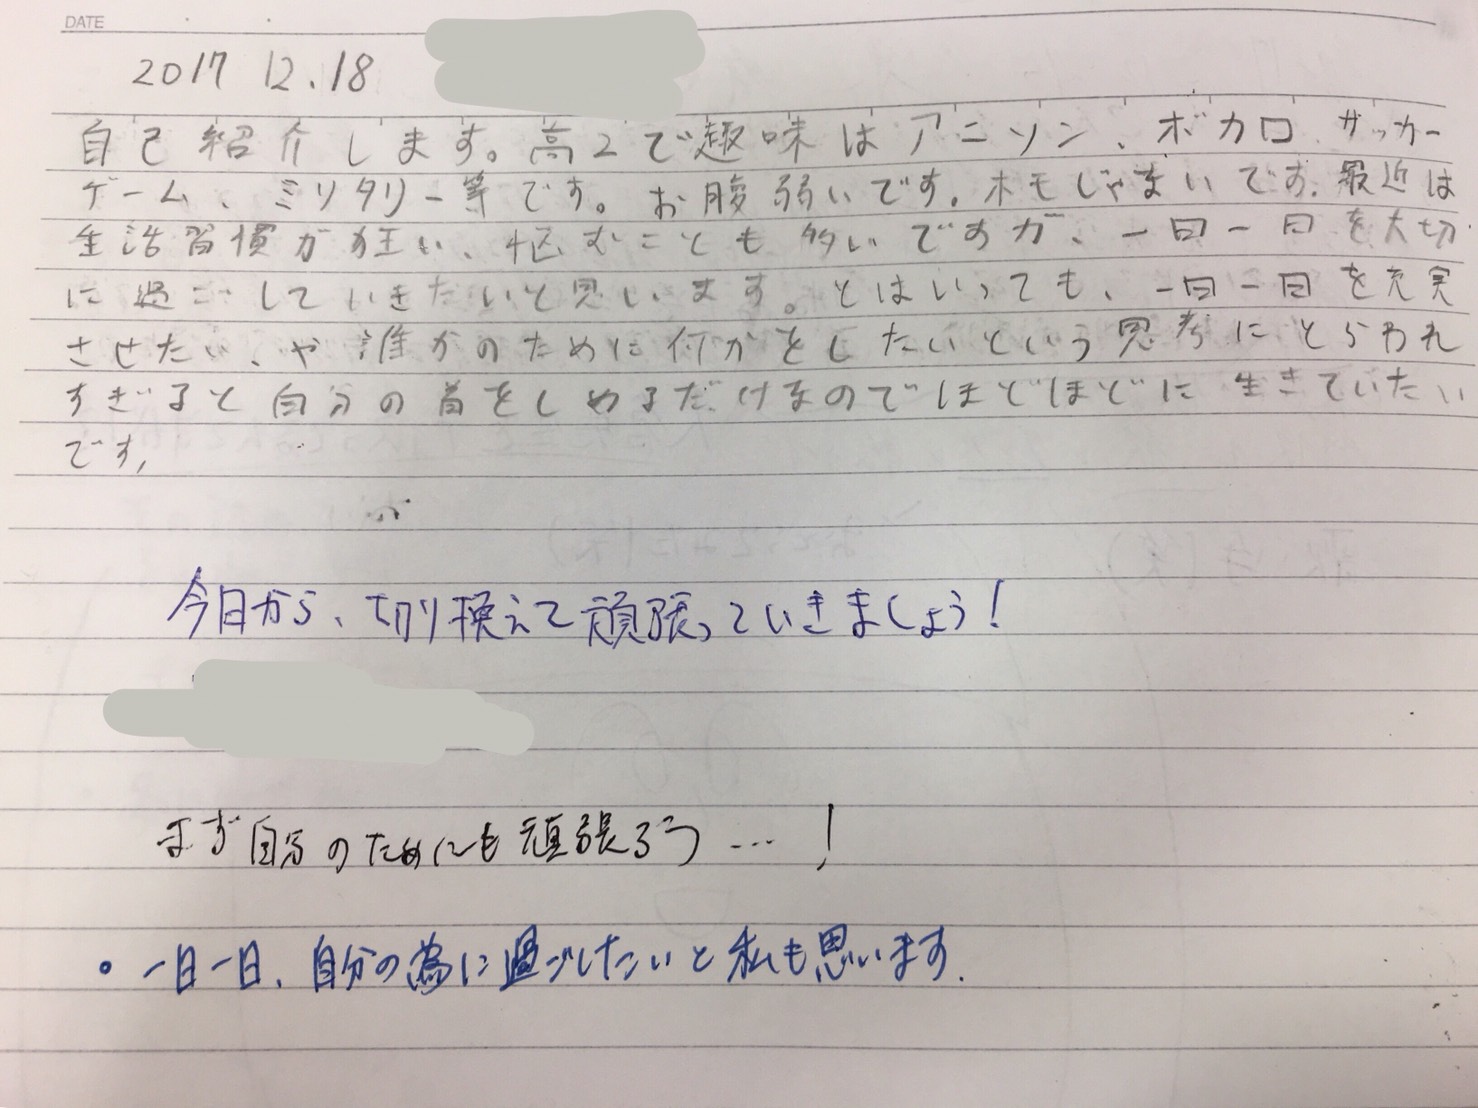 DATE
2017 12.18
自己紹介します。高2で趣味はアニソン、ボカロ サッカー
ゲーム、ミリタリー等です。お腹弱いです。ホモじゃないです。最近は
生活習慣が狂い、悩むことも多いですが、一日一日を大切
に過ごしていきたいと思います。とはいっても、一日一日を充実
させたい、や誰かのために何かをしたいという思考にとらわれ
すぎると自分の首をしめるだけなのでほどほどに生きていたい
です,
今日から、切り換えて頑張っていきましょう!
まず自分のためにも頑張ろう…!
• 一日一日、自分の為に過ごしたいと私も思います.